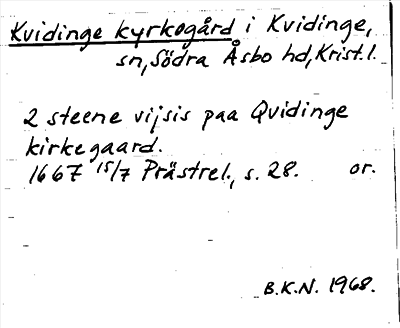 Kvidinge kyrkogård i Kvidinge,
sn, Södra Åsbo hd, Krist. l.
2 steene vijsis paa Qvidinge
kirkegaard.
1667 15/7 Prästrel., s. 28. or.
B.K.N. 1968.